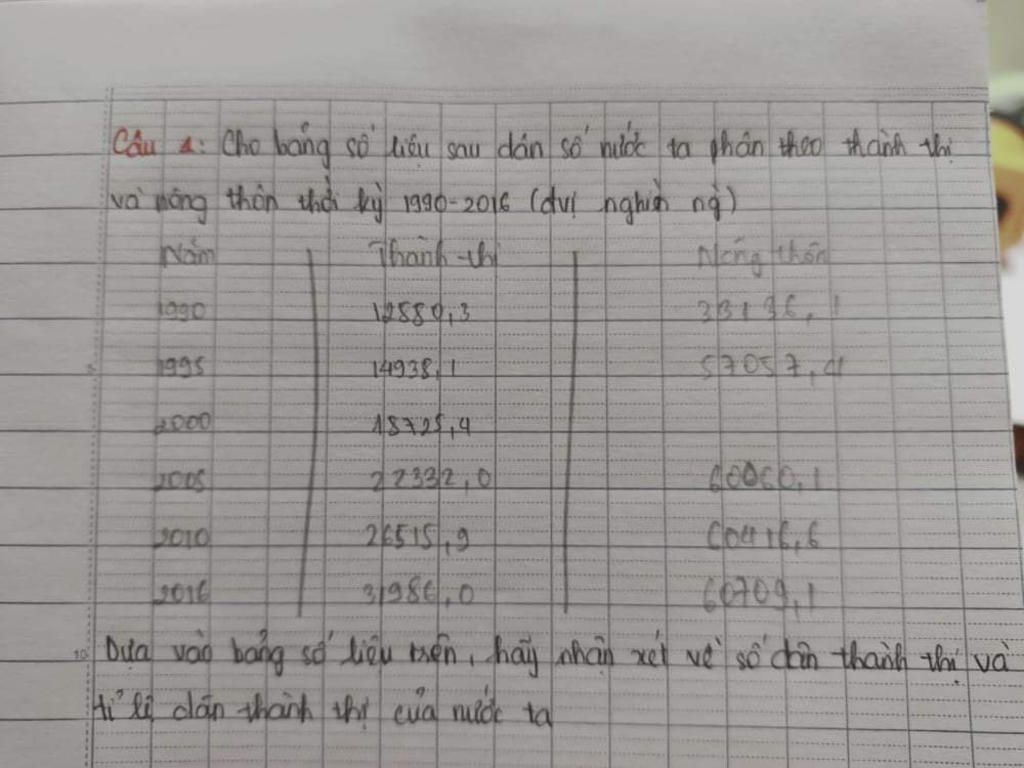 Câu 1: Cho bảng số liệu sau dân số nước ta phân theo thành thị
và nông thôn thời kỳ 1990-2016 (đvị nghìn ng)
Năm Thành thị Nông thôn
1990 12880,3 33136,1
1995 14938,1 57057,4
2000 18725,4
2005 22332,0 60060,1
2010 26515,9 60416,6
2016 31986,0 60709,1
Dựa vào bảng số liệu trên, hãy nhận xét về số dân thành thị và
tỉ lệ dân thành thị của nước ta